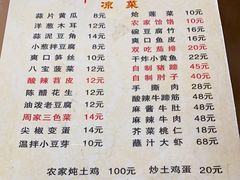 凉菜
蒜片黄瓜 8元
洋葱木耳 12元
蒜泥豆角 14元
小葱拌豆腐 8元
爽口笋丝 10元
八宝菠菜 12元
酸辣苕皮 12元
陈醋花生 10元
油泼老豆腐 12元
周家三色菜 14元
尖椒变蛋 14元
温拌小豆芽 10元
炝莲菜 10元
农家饸饹 10元
碗豆腐竹 16元
爽口鱼皮 16元
双吃茄排 20元
干炸小黄鱼 22元
自制猪蹄 45元
自制肘子 40元
手撕肉 38元
酸辣牛蹄筋 38元
麻酱牛肚 48元
麻辣牛肉 58元
芥菜桃仁 18元
蘸汁大虾 68元
农家炖土鸡 100元 炒土鸡蛋 20元